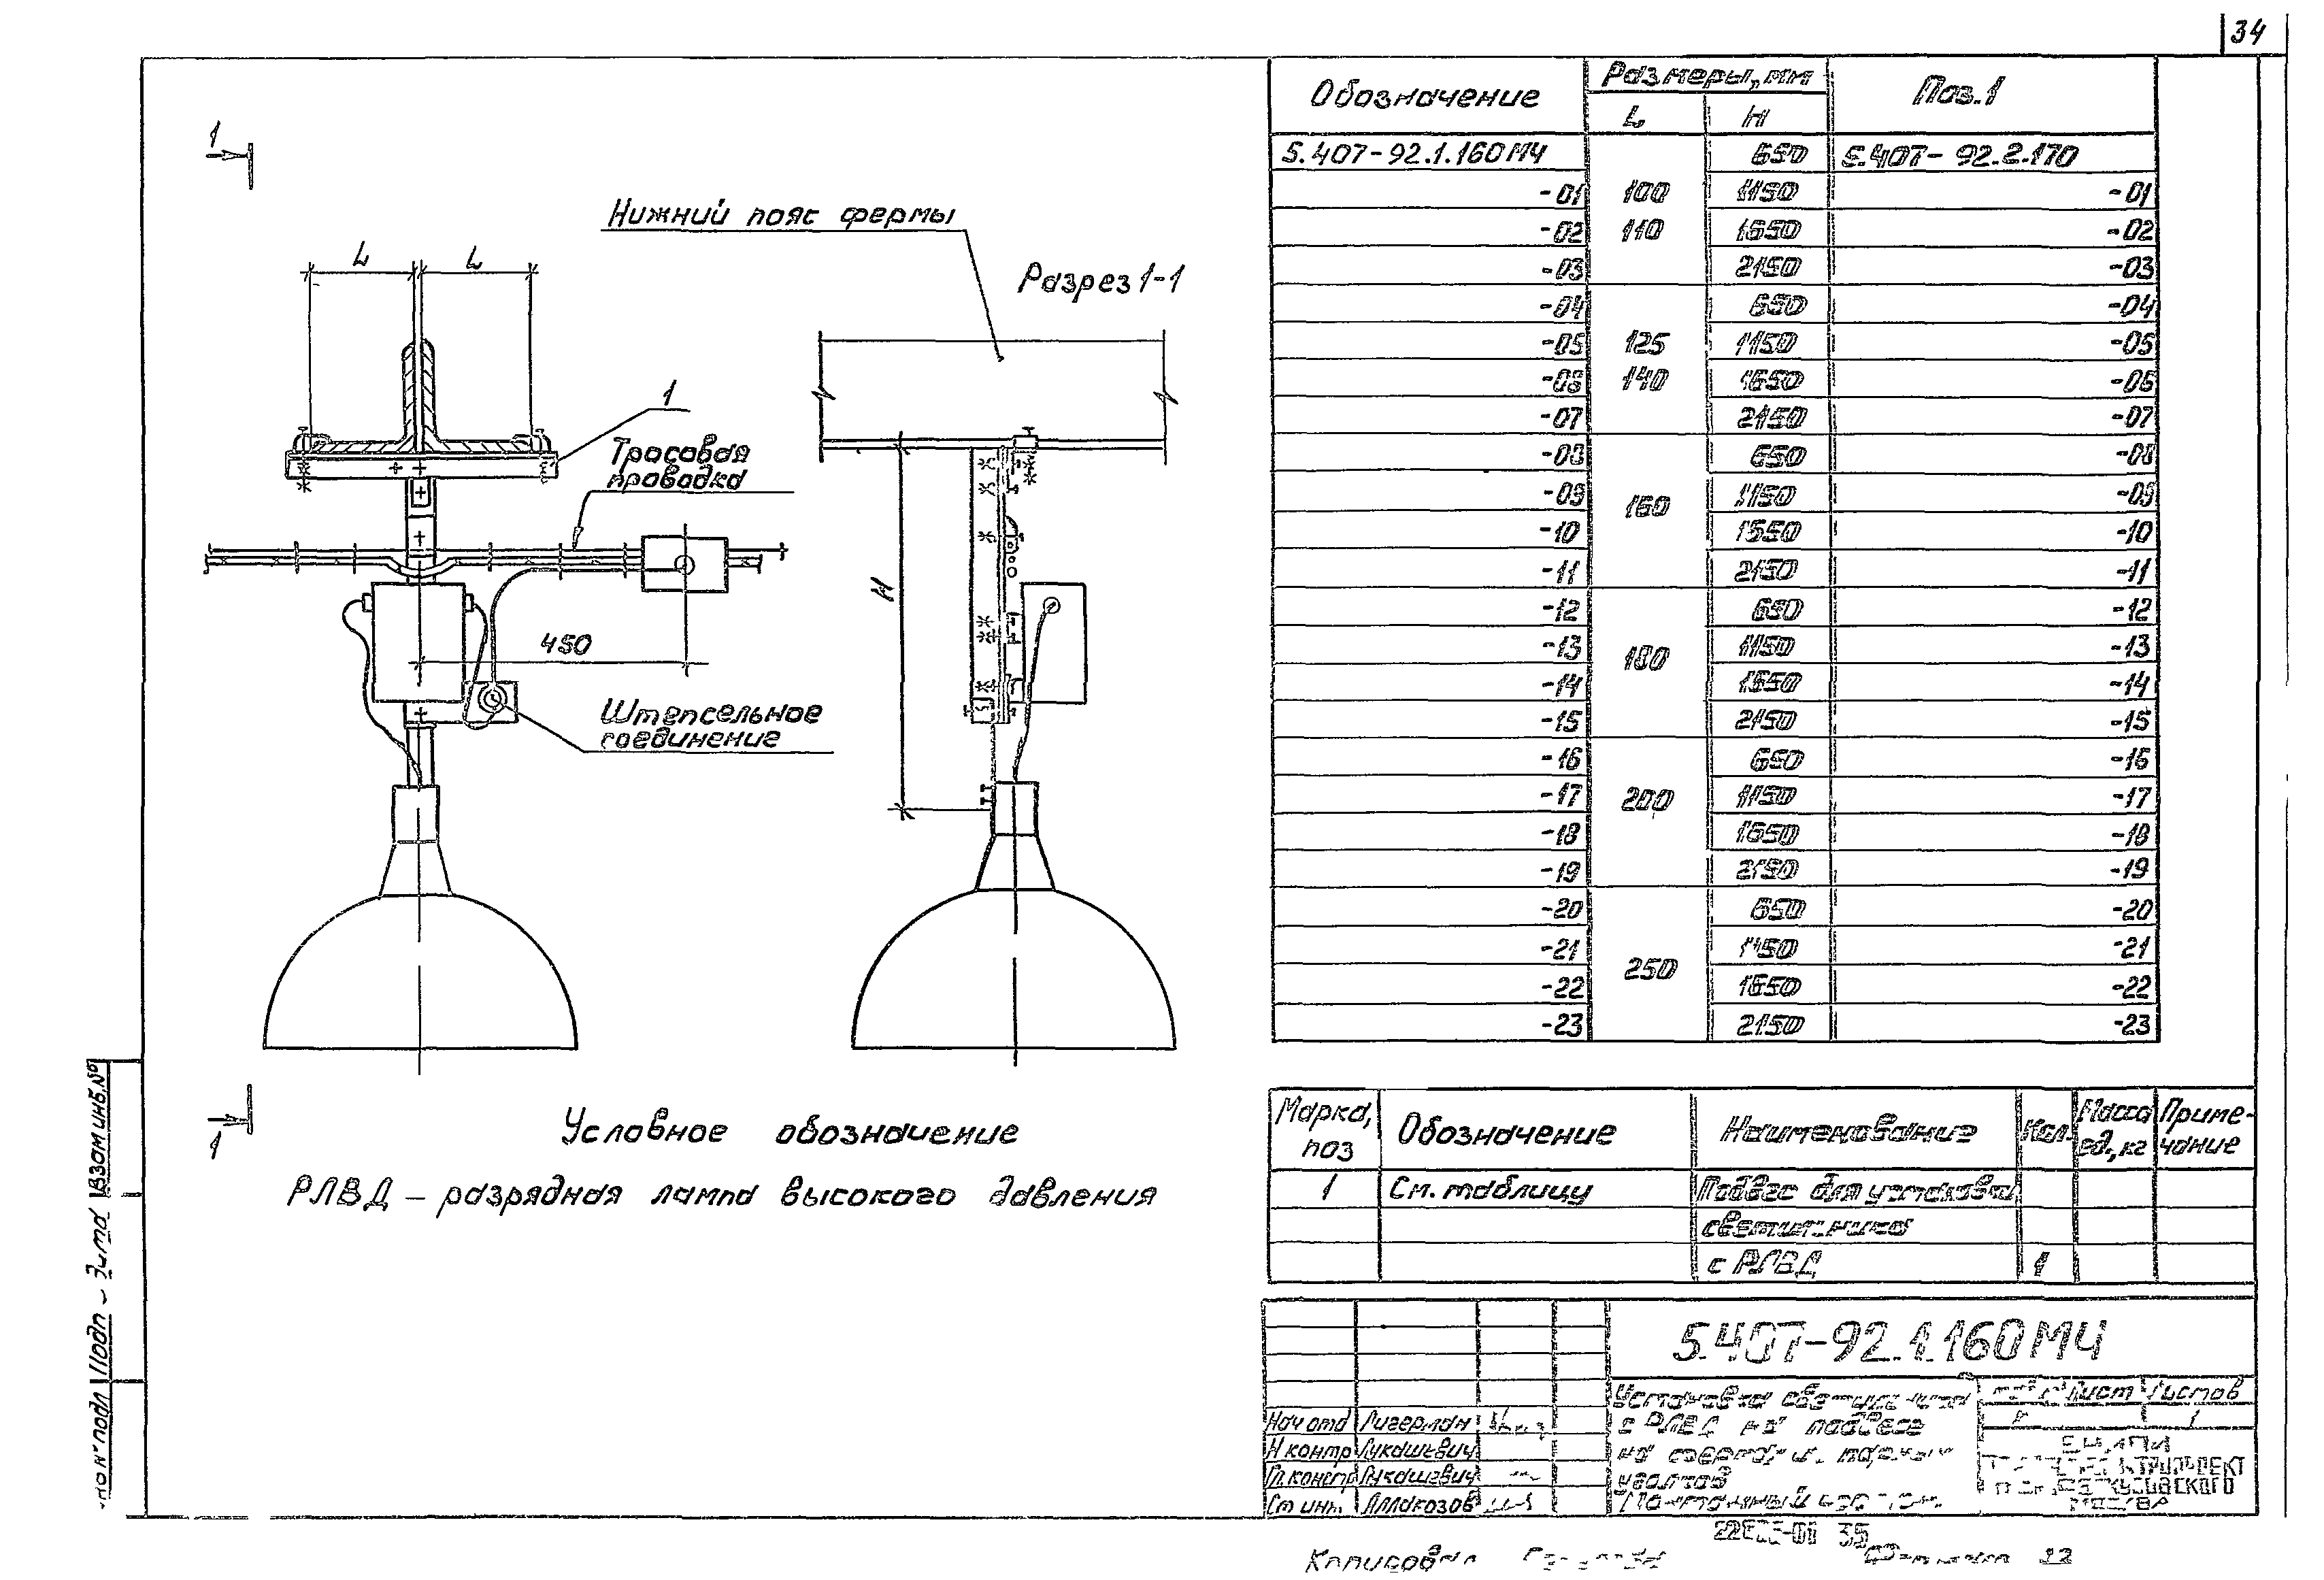 34
1
Нижний пояс фермы
L L
Разрез 1-1
1
Тросовая
проводка
H
450
Штепсельное
соединение
1
Условное обозначение
РЛВД – разрядная лампа высокого давления
Обозначение Размеры, мм Поз. 1
L H
5.407-92.1.160МЧ 650 5.407-92.2.170
-01 100 1150 -01
-02 110 1650 -02
-03 2150 -03
-04 650 -04
-05 125 1150 -05
-06 140 1650 -06
-07 2150 -07
-08 650 -08
-09 160 1150 -09
-10 1650 -10
-11 2150 -11
-12 650 -12
-13 180 1150 -13
-14 1650 -14
-15 2150 -15
-16 650 -16
-17 200 1150 -17
-18 1650 -18
-19 2150 -19
-20 650 -20
-21 1150 -21
-22 250 1650 -22
-23 2150 -23
Марка, поз Обозначение Наименование Кол. Масса ед., кг Примечание
1 См. таблицу Подвес для установки
светильника
с РЛВД 1
5.407-92.1.160МЧ
Установка светильника
с РЛВД на подвесе
на фермах из парных
уголков
Лист Листов
1
Нач отд Лигерман
Н контр Лукашевич
Гл. констр Лукашевич
Ст инж. Аллакозов
МОСКВА
Копировал
Взам инв. №
Подп